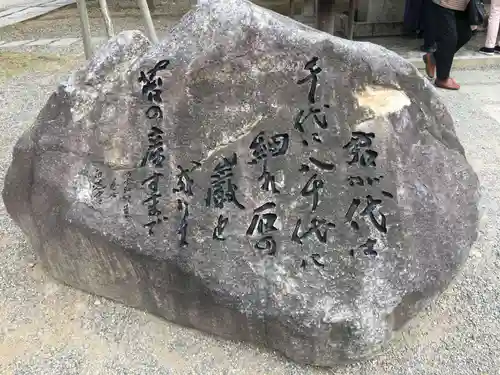 君が代は
千代に八千代に
細れ石の
巌と
成りて
苔の産すまで